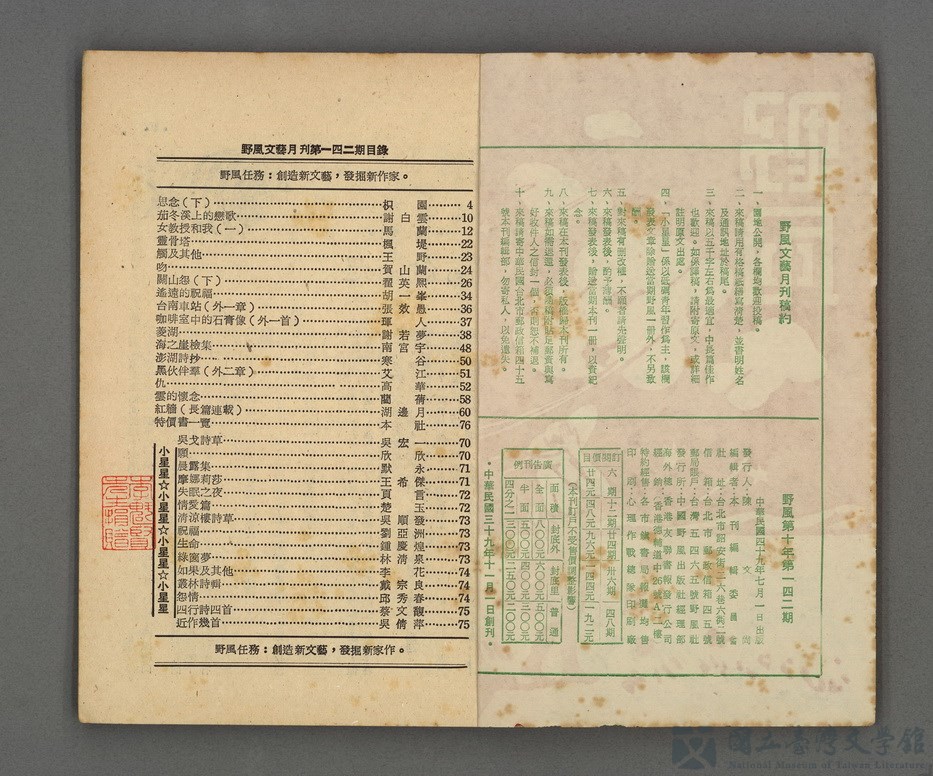 野風文藝月刊第一四二期目錄
野風任務：創造新文藝，發掘新作家。
思念（下）……枳園……4
茄冬溪上的戀歌……謝白雲……10
女教授和我（一）……馬蘭……12
靈骨塔……楓堤……22
觸及其他……王野……23
吻……賀山蘭……24
關山怨（下）……翟英熙……26
遙遠的祝福……胡一峯……34
台南車站（外一章）……張效愚……36
咖啡室中的石膏像（外一首）……琿人……37
菱湖……謝若夢……38
海之崖檢集……南宮宇……48
澎湖詩抄……寒谷……50
黑伙伴羣（外二章）……艾江……51
仇……高華……52
雲的懷念……蘭蒨……58
紅牆（長篇連載）……湖邊月……60
特價書一覽……本社……76
小星星☆小星星☆小星星☆小星星
吳戈詩草……吳宏一……70
願……欣欣……70
晨露集……默永……71
摩娜莉莎……王希傑……71
失眠之夜……頁言……72
情愛篇……楚玉……72
清涼樓詩草……吳順發……73
祝福……劉亞洲……73
生命……鍾慶煌……73
綠窗夢……林清泉……73
如果及其他……李花……74
叢林詩輯……戴宗良……74
怨情……邱秀春……74
四行詩四首……蔡文馥……75
近作幾首……吳倩萍……75
野風任務：創造新文藝，發掘新家作。
野風文藝月刊稿約
一、園地公開，各欄均歡迎投稿。
二、來稿請用有格稿紙繕寫清楚，並書明姓名
及通訊地址於稿尾。
三、來稿以五千字左右爲最適宜，中長篇佳作
也歡迎。如係譯稿，請附寄原文，或詳細
註明原文出處。
四、「小星星」係以砥礪青年習作爲主，該欄
發表文章除贈送當期野風一册外，不另致
酬。
五、對來稿有删改權，不願者請先聲明。
六、來稿發表後，酌予薄酬。
七、來稿發表後，贈送當期本刊一册，以資紀
念。
八、來稿在本刊發表後，版權歸本刊所有。
九、來稿如需退還，必須附貼足郵資與寫
好收件人之信封一個，否則恕不補退。
十、來稿請寄中華民國台北市郵政信箱四十五
號本刊編輯部，勿寄私人，以免遺失。
野風第十年第一四二期
中華民國四十九年七月一日出版
發行人：陳文尚
編輯者：本刊編輯委員會
社址：台北市詔安街二六巷六衖二號
信箱：台北市郵政信箱四五號
郵局賬戶：台灣五四六五號野風社
發行所：中國野風出版社經理部
海外總：香港友聯書報發行公司
特約經售：各市鎮書局報攤均售
印刷：心理作戰總隊印刷廠
訂閱價目
六期 十二期 廿四期 卅六期 四八期
廿四元 四八元 九六元 一四四元 一九二元
（本刊訂戶不受售價調整影響）
廣告刊例
面積 封底外 封底里 普通
全面 八〇〇元 六〇〇元 五〇〇元
半面 五〇〇元 四〇〇元 三〇〇元
四分之一 三〇〇元 二五〇元 二〇〇元
・中華民國三十九年十一月一日創刊・
國立臺灣文學館
National Museum of Taiwan Literature